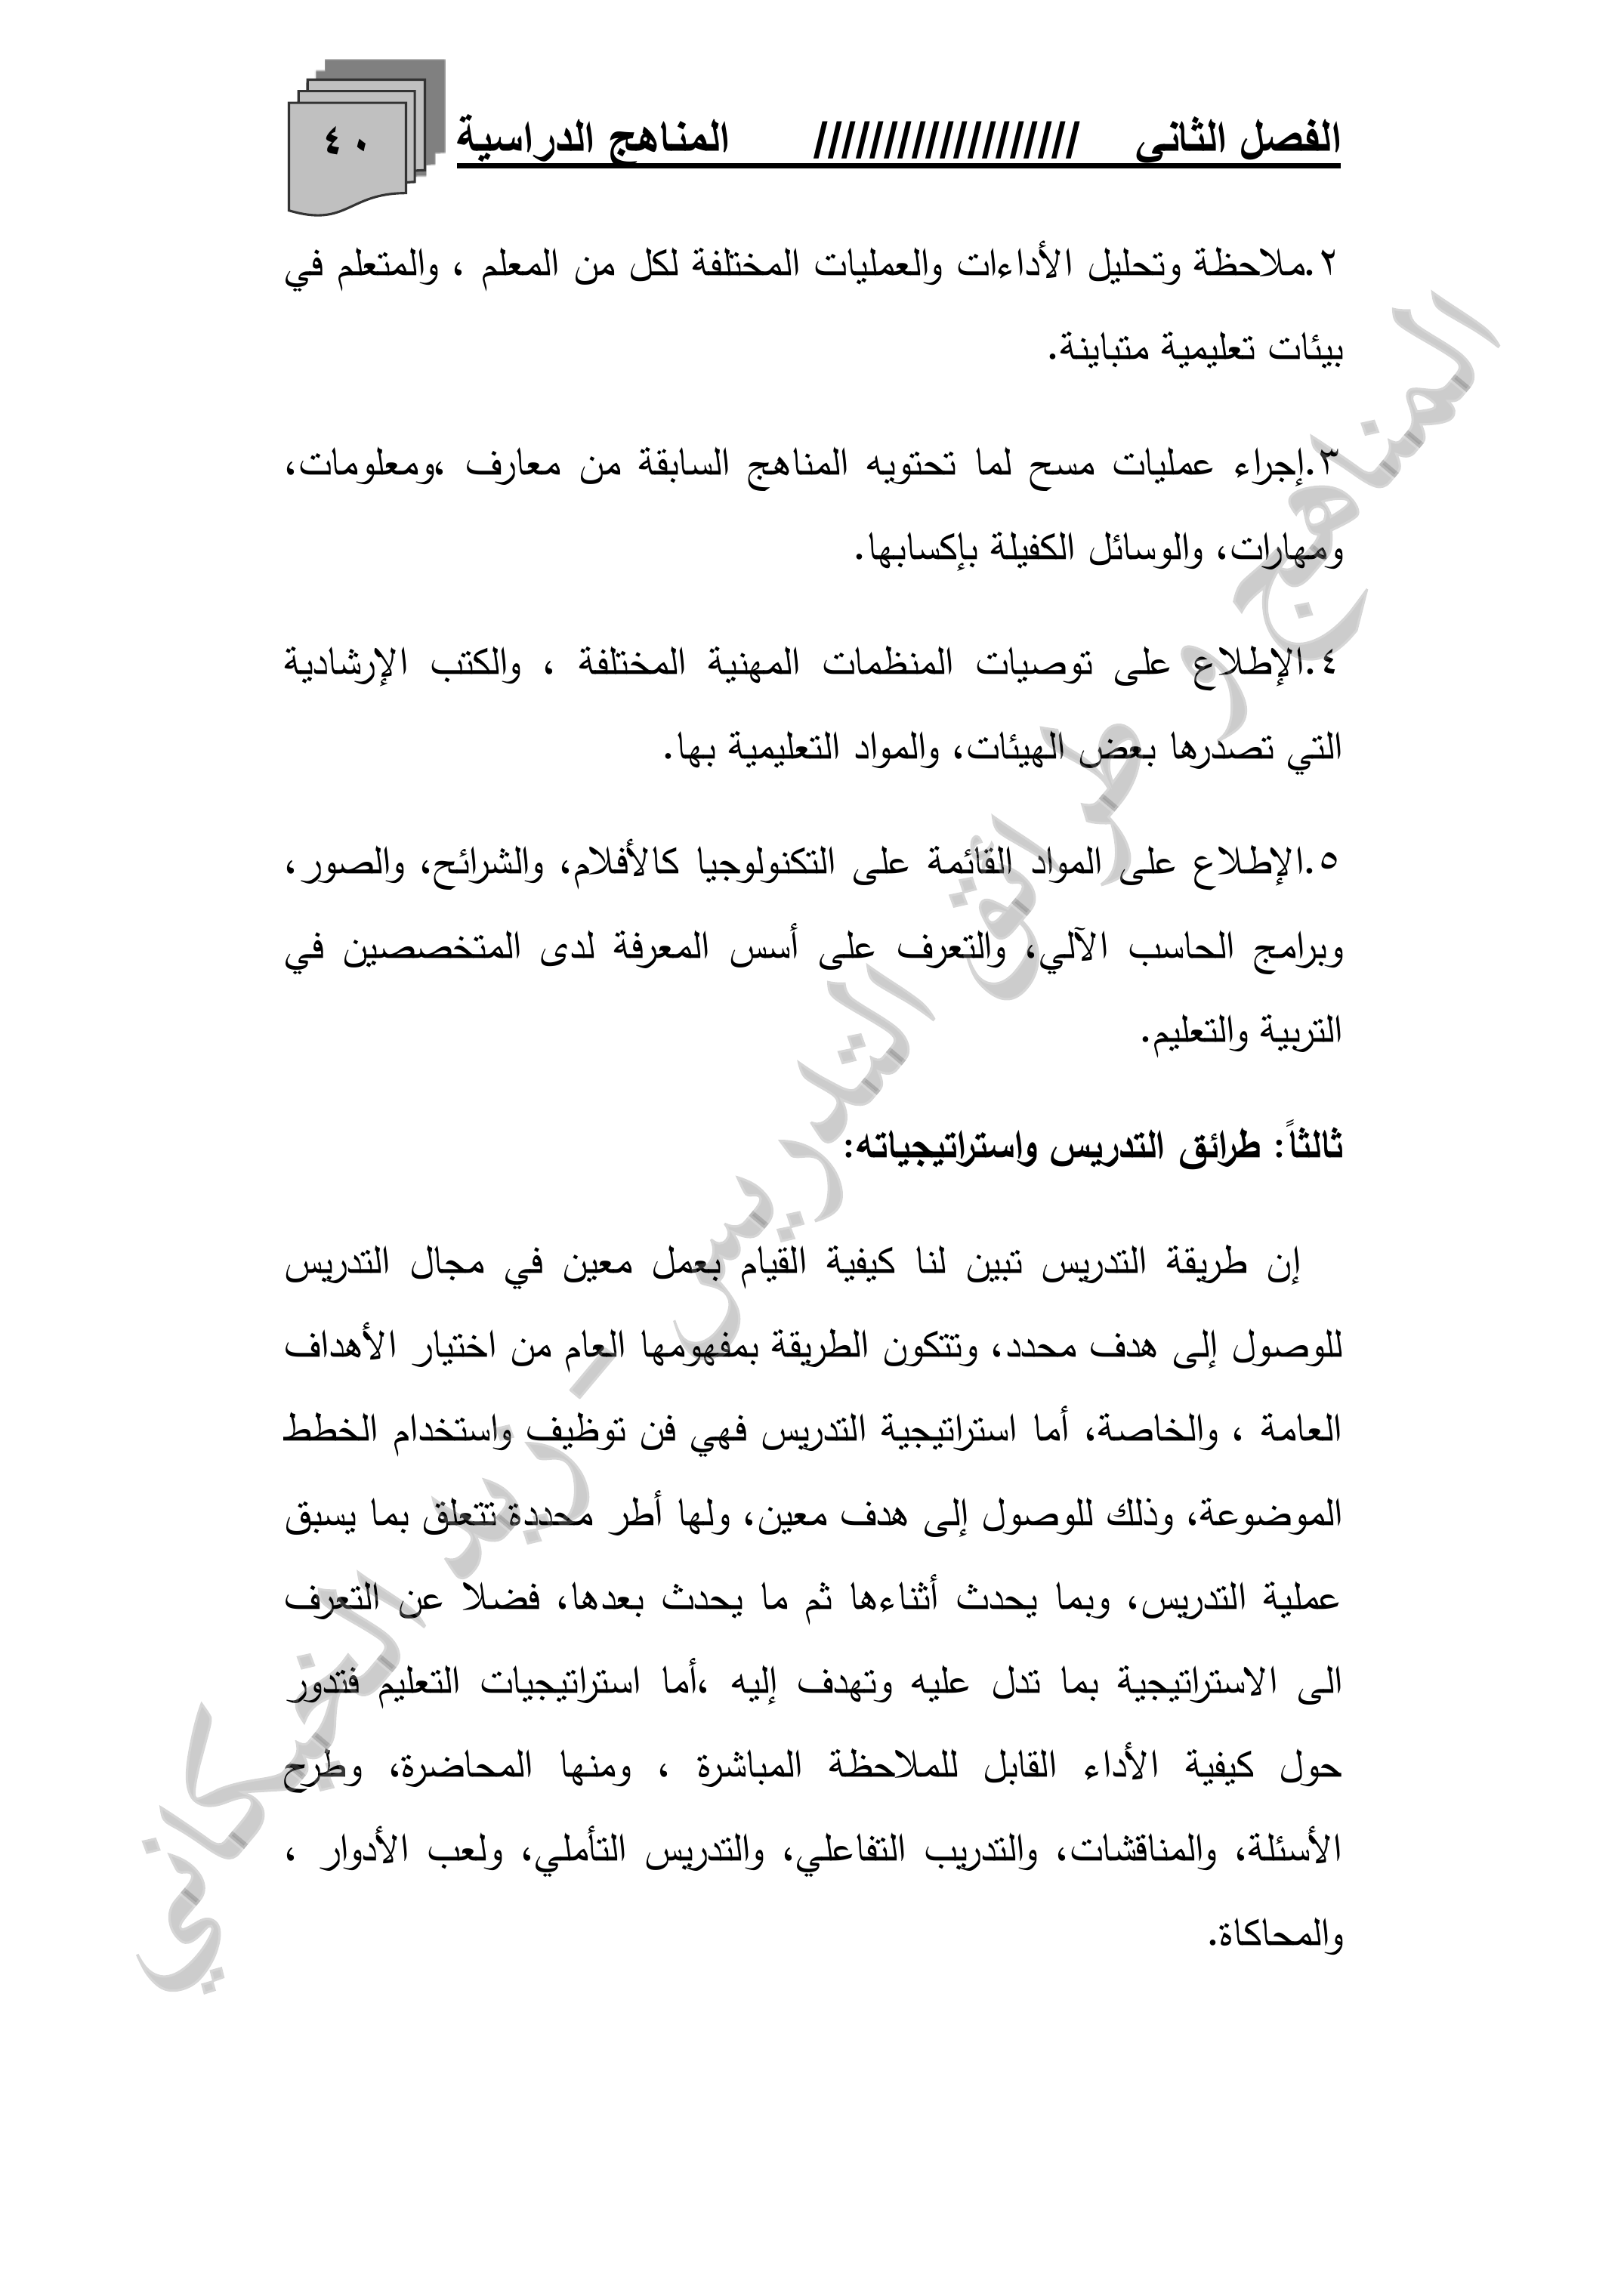 الفصل الثاني /////////////////// المناهج الدراسية
٤٠
٢.ملاحظة وتحليل الأداءات والعمليات المختلفة لكل من المعلم ، والمتعلم في
بيئات تعليمية متباينة.
٣.إجراء عمليات مسح لما تحتويه المناهج السابقة من معارف ،ومعلومات،
ومهارات، والوسائل الكفيلة بإكسابها.
٤.الإطلاع على توصيات المنظمات المهنية المختلفة ، والكتب الإرشادية
التي تصدرها بعض الهيئات، والمواد التعليمية بها.
٥.الإطلاع على المواد القائمة على التكنولوجيا كالأفلام، والشرائح، والصور،
وبرامج الحاسب الآلي، والتعرف على أسس المعرفة لدى المتخصصين في
التربية والتعليم.
ثالثاً: طرائق التدريس واستراتيجياته:
إن طريقة التدريس تبين لنا كيفية القيام بعمل معين في مجال التدريس
للوصول إلى هدف محدد، وتتكون الطريقة بمفهومها العام من اختيار الأهداف
العامة ، والخاصة، أما استراتيجية التدريس فهي فن توظيف واستخدام الخطط
الموضوعة، وذلك للوصول إلى هدف معين، ولها أطر محددة تتعلق بما يسبق
عملية التدريس، وبما يحدث أثناءها ثم ما يحدث بعدها، فضلا عن التعرف
الى الاستراتيجية بما تدل عليه وتهدف إليه ،أما استراتيجيات التعليم فتدور
حول كيفية الأداء القابل للملاحظة المباشرة ، ومنها المحاضرة، وطرح
الأسئلة، والمناقشات، والتدريب التفاعلي، والتدريس التأملي، ولعب الأدوار ،
والمحاكاة.
المناهج و طرائق التدريس - زيد الخيكاني